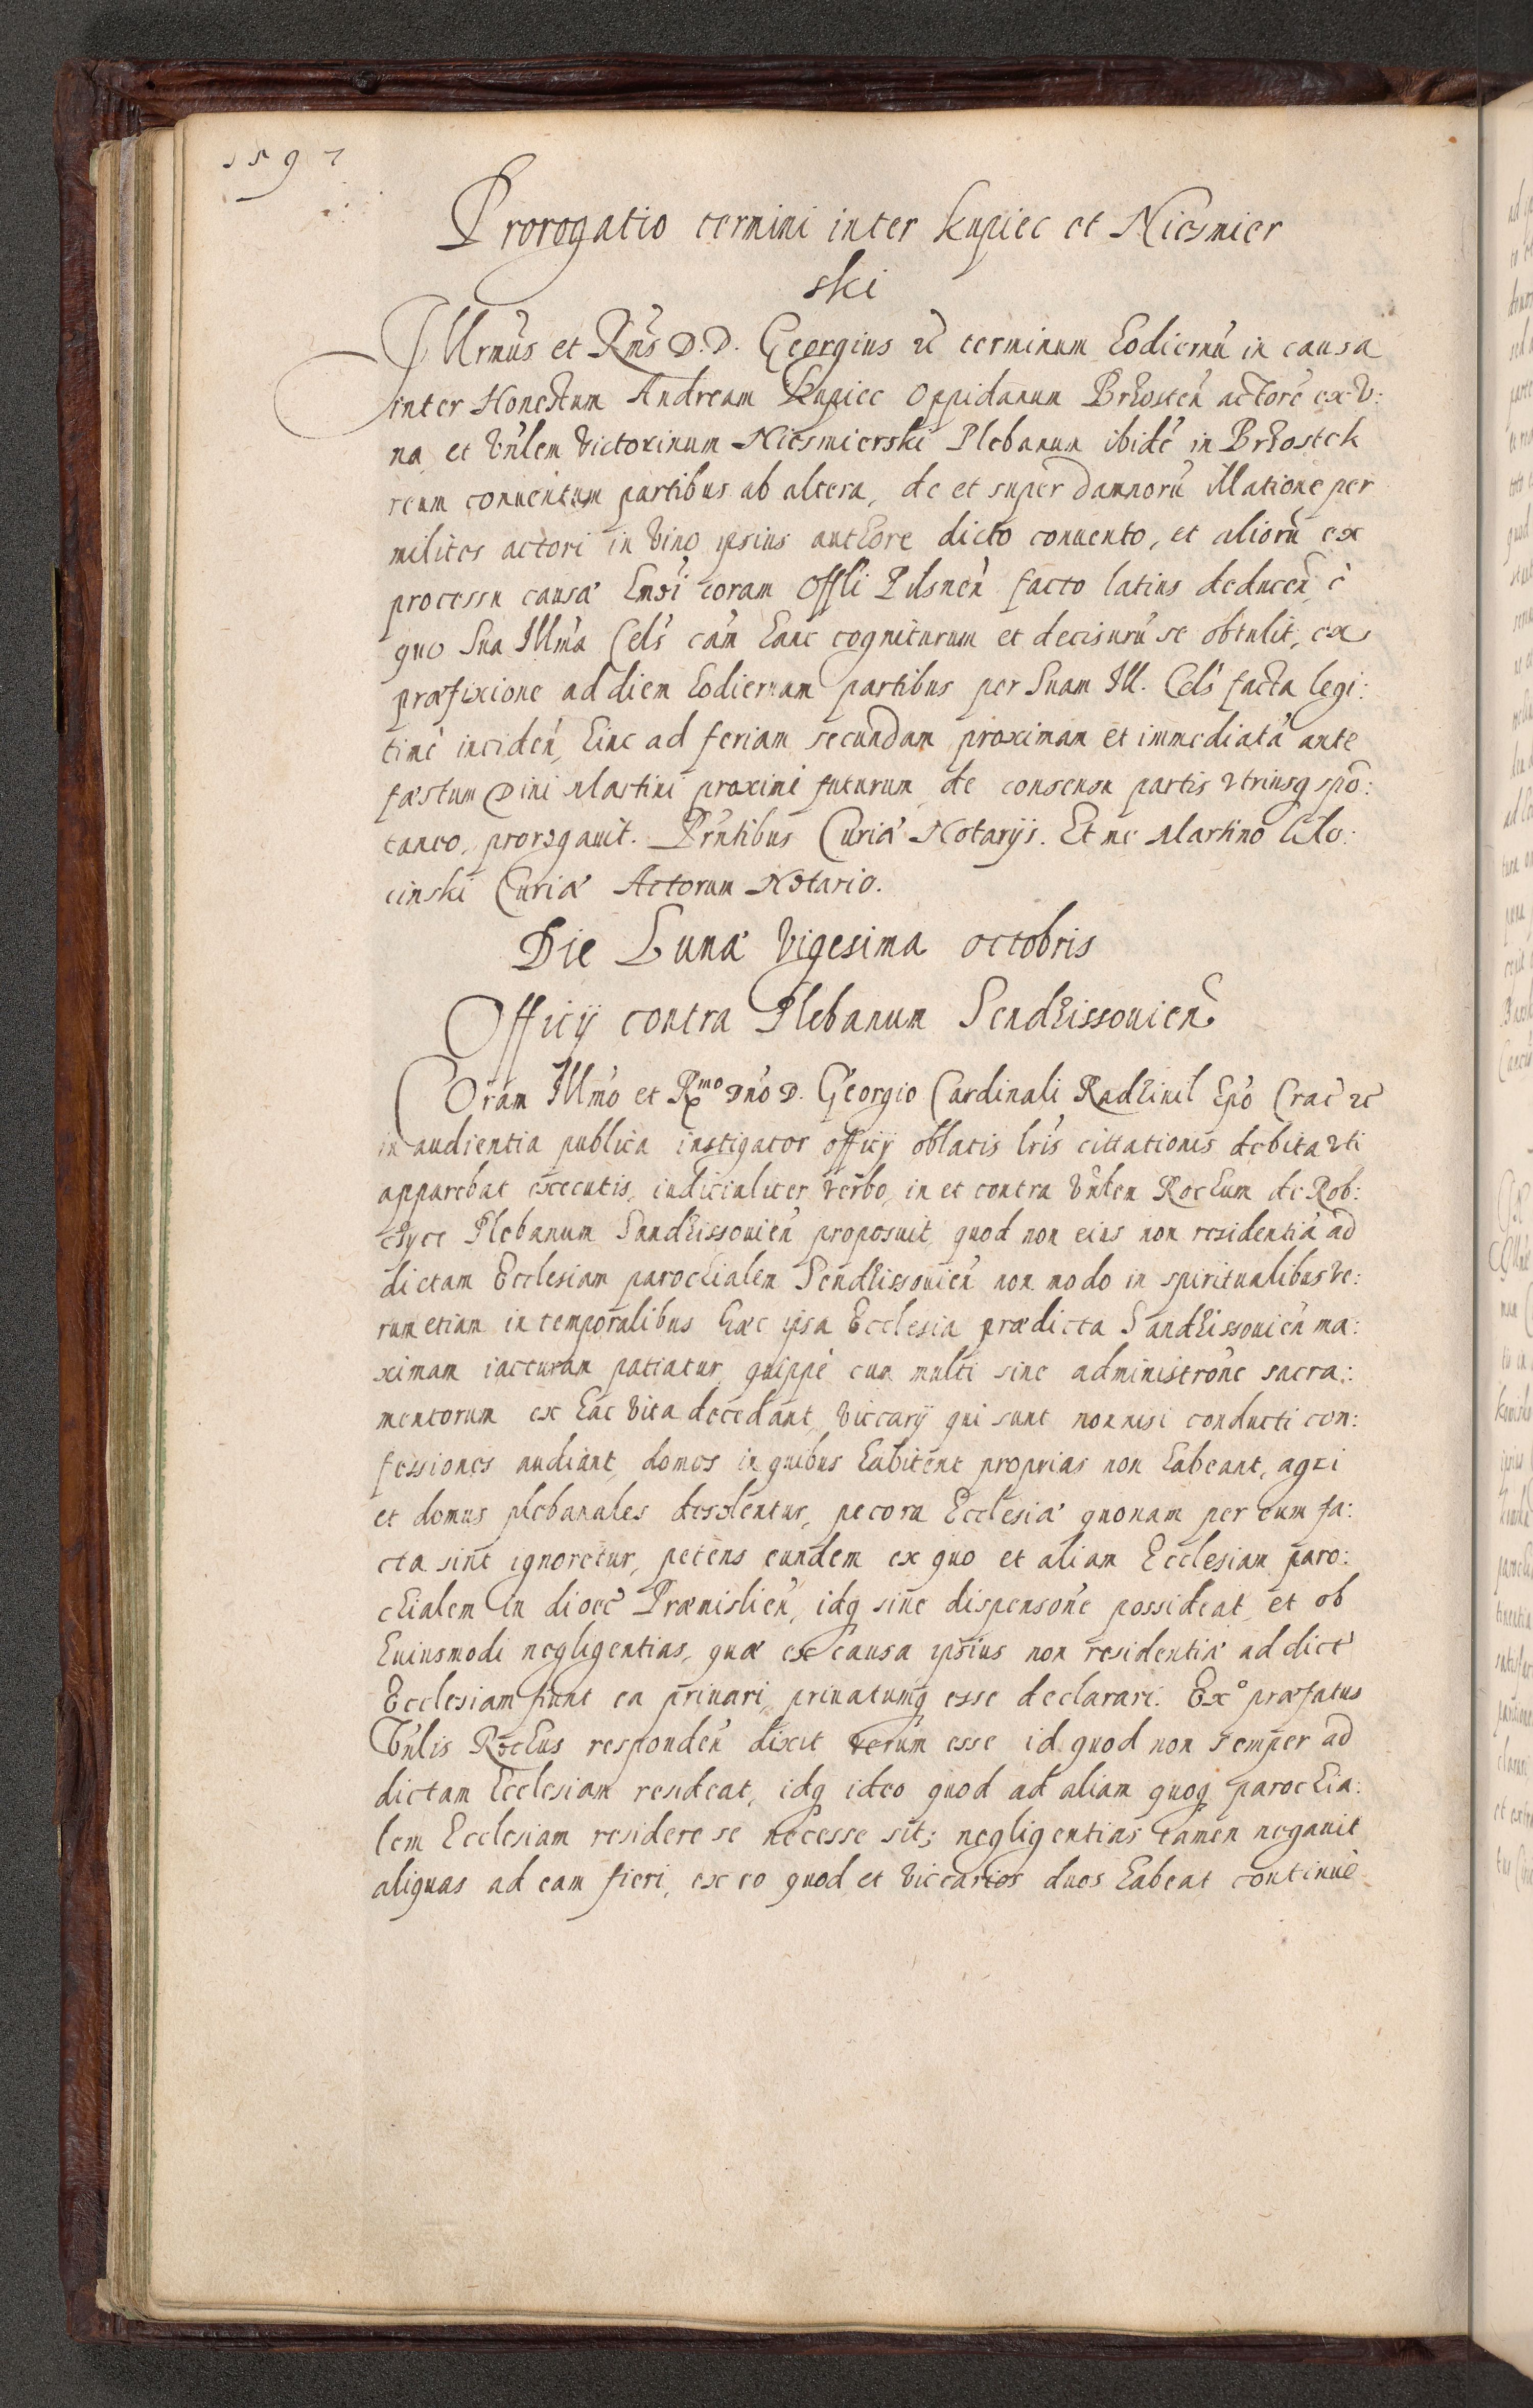 1597
Prorogatio termini inter Kupiec et Niesmier
ski
Illrmus et Rms D. D. Georgius &c terminum hodiernũ in causa
inter Honestum Andream Kupiec Oppidanum Brzosteñ actorẽ ex v:
na, et Vñlem Victorinum Niesmierski Plebanum ibidẽ in Brzostek
reum conuentum partibus ab altera, de et super damnorũ illatione per
milites actori in vino ipsius authore dicto conuento, et aliorũ ex
processu causæ hmõi coram Offli Pilsneñ facto latius deduceñ, è
quo Sua Illma Cels cãm hanc cogniturum et decisurũ se obtulit, ex
præfixione ad diem hodiernam partibus per Suam Ill. Cels facta legi:
timè incideñ, hinc ad feriam secundam proximam et immediatã ante
fæstum Diui Martini proximè futurum, de consensu partis vtriusq spõ:
taneo, prorogauit. Prñtibus Curiæ Notarijs. Et me Martino
cinski Curiæ Actorum Notario.
Die Lunæ Vigesima octobris
Officij contra Plebanum Sendzissouieñ
Coram Illmo et Rmo Dño D. Georgio Cardinali Radziuil Epõ Crac &c
in audientia publica instigator officij oblatis lris cittationis debitæ vti
apparebat executis, iudicialiter verbo, in et contra Vñlem Rochum de Rob:
czyce Plebanum Sandzissouieñ proposuit, quod non eius non residentiã ad
dictam Ecclesiam parochialem Sendzissouieñ non modo in spiritualibus ve:
rum etiam in temporalibus hæc ipsa Ecclesia prædicta Sandzissouieñ ma:
ximam iacturam patiatur, quippè cum multi sine administrõne sacra:
mentorum ex hac vita decedant, viccarij qui sunt nonnisi conducti con:
fessiones audiant, domos in quibus habitent proprias non habeant, agri
et domus plebanales desolentur, pecora Ecclesiæ quonam per eum fa:
cta sint ignoretur, petens eundem ex quo et aliam Ecclesiam paro:
chialem in diœc Præmislieñ, idq sine dispensõne possideat, et ob
huiusmodi negligentias, quæ ex causa ipsius non residentiæ ad dict
Ecclesiam fiunt ea priuari, priuatumq esse declarari. Exo præfatus
Vñlis Rochus respondeñ dixit verum esse id quod non semper ad
dictam Ecclesiam resideat, idq ideo quod ad aliam quoq parochia:
lem Ecclesiam residere se necesse sit; negligentias tamen negauit
aliquas ad eam fieri, ex eo quod et viccarios duos habeat continuè